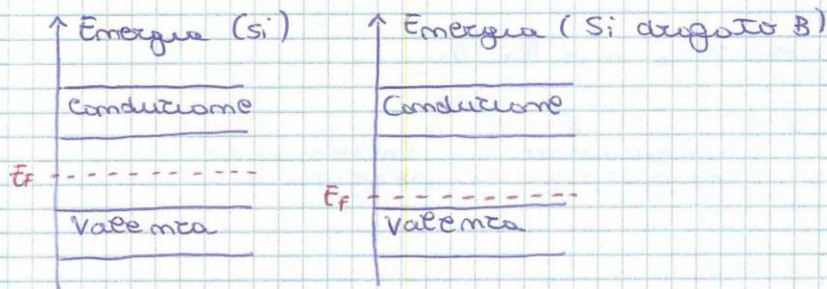 Energia (Si)
Conduzione
EF
Valenza
Energia (Si drogato B)
Conduzione
EF
Valenza